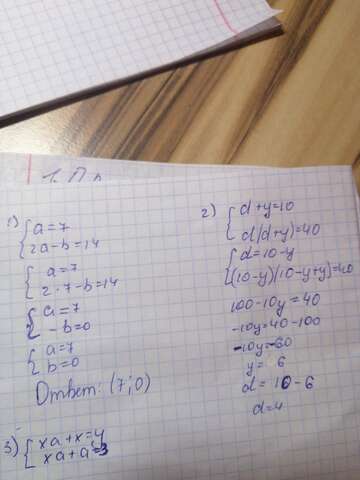 1) { a=7
2a-b=14
{ a=7
2·7-b=14
{ a=7
-b=0
{ a=7
b=0
Ответ: (7;0)
2) { d+y=10
d(d+y)=40
{ d=10-y
(10-y)(10-y+y)=40
100-10y=40
-10y=40-100
-10y=-60
y= 6
d= 10-6
d=4
3) { xa+x=4
xa+a=3